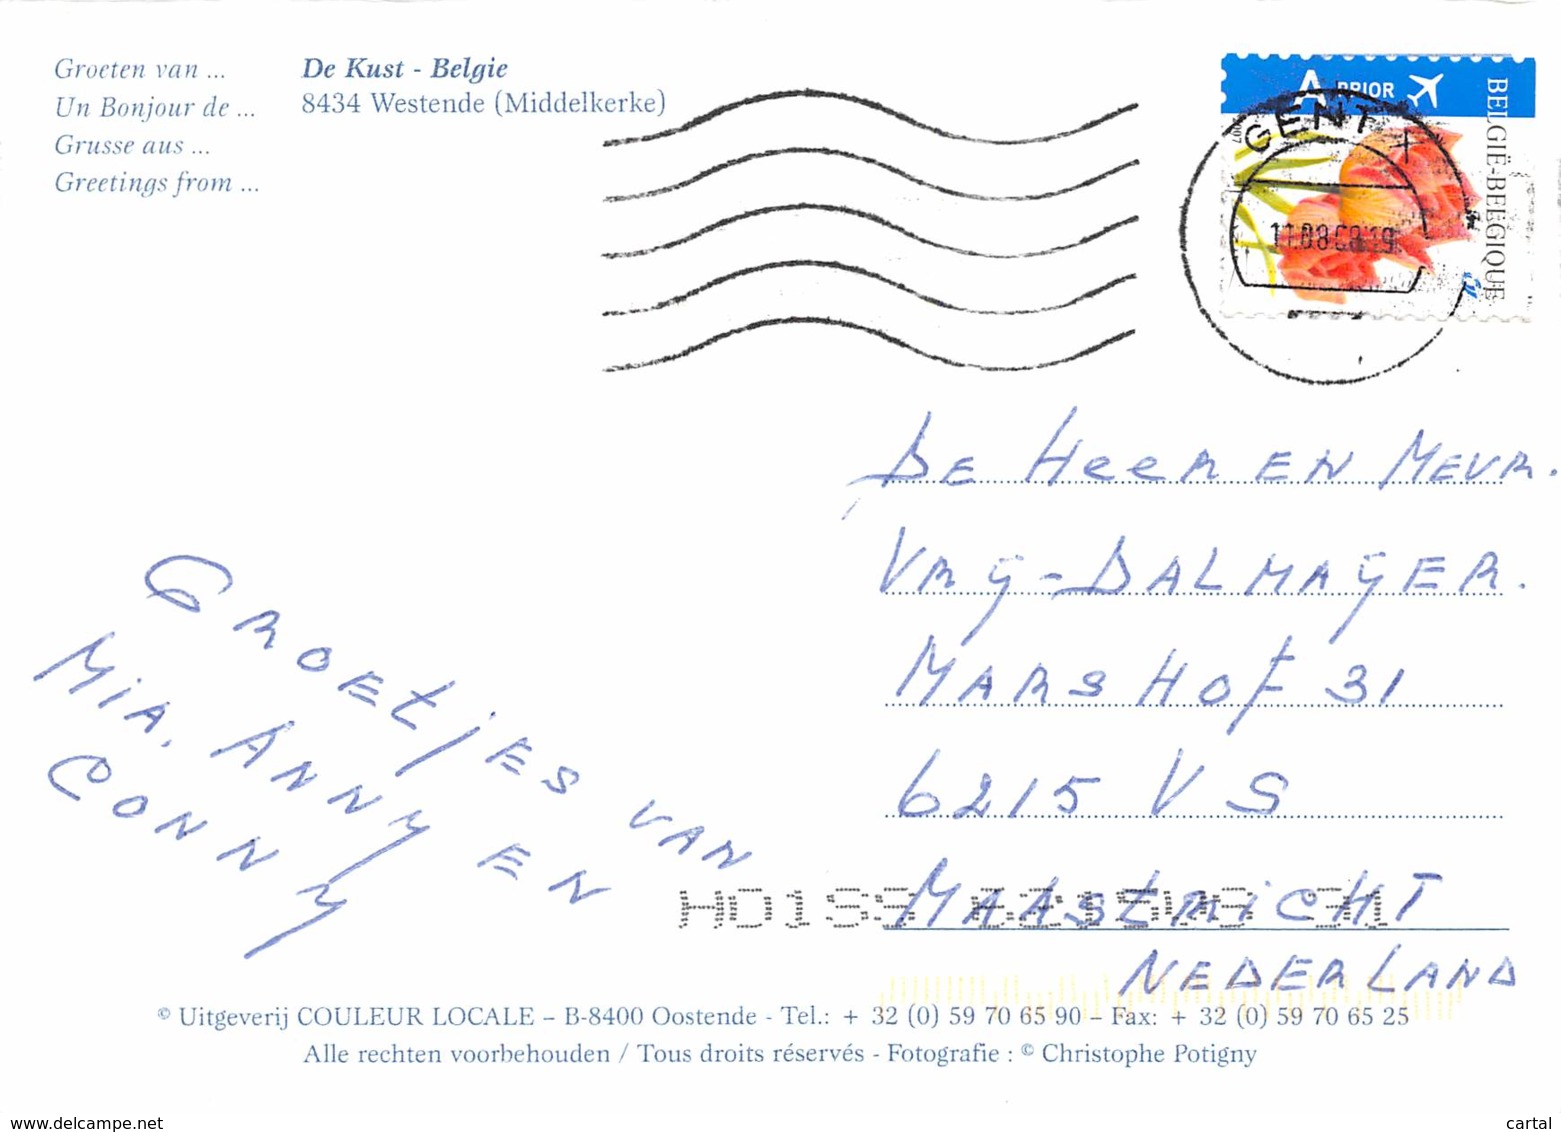 Groeten van ...
Un Bonjour de ...
Grusse aus ...
Greetings from ...
De Kust - Belgie
8434 Westende (Middelkerke)
A PRIOR
BELGIË-BELGIQUE
2007
GENT X
11.08.08 19
DE HEER EN MEVR.
VRY-DALMAYER.
MARSHOF 31
6215 VS
MAAStRiCHT
NEDERLAND
GROEtjES VAN
MiA, ANNY EN
CONNY
HD1SS 6215VS 31
© Uitgeverij COULEUR LOCALE – B-8400 Oostende - Tel.: + 32 (0) 59 70 65 90 – Fax: + 32 (0) 59 70 65 25
Alle rechten voorbehouden / Tous droits réservés - Fotografie : © Christophe Potigny
www.delcampe.net
cartal